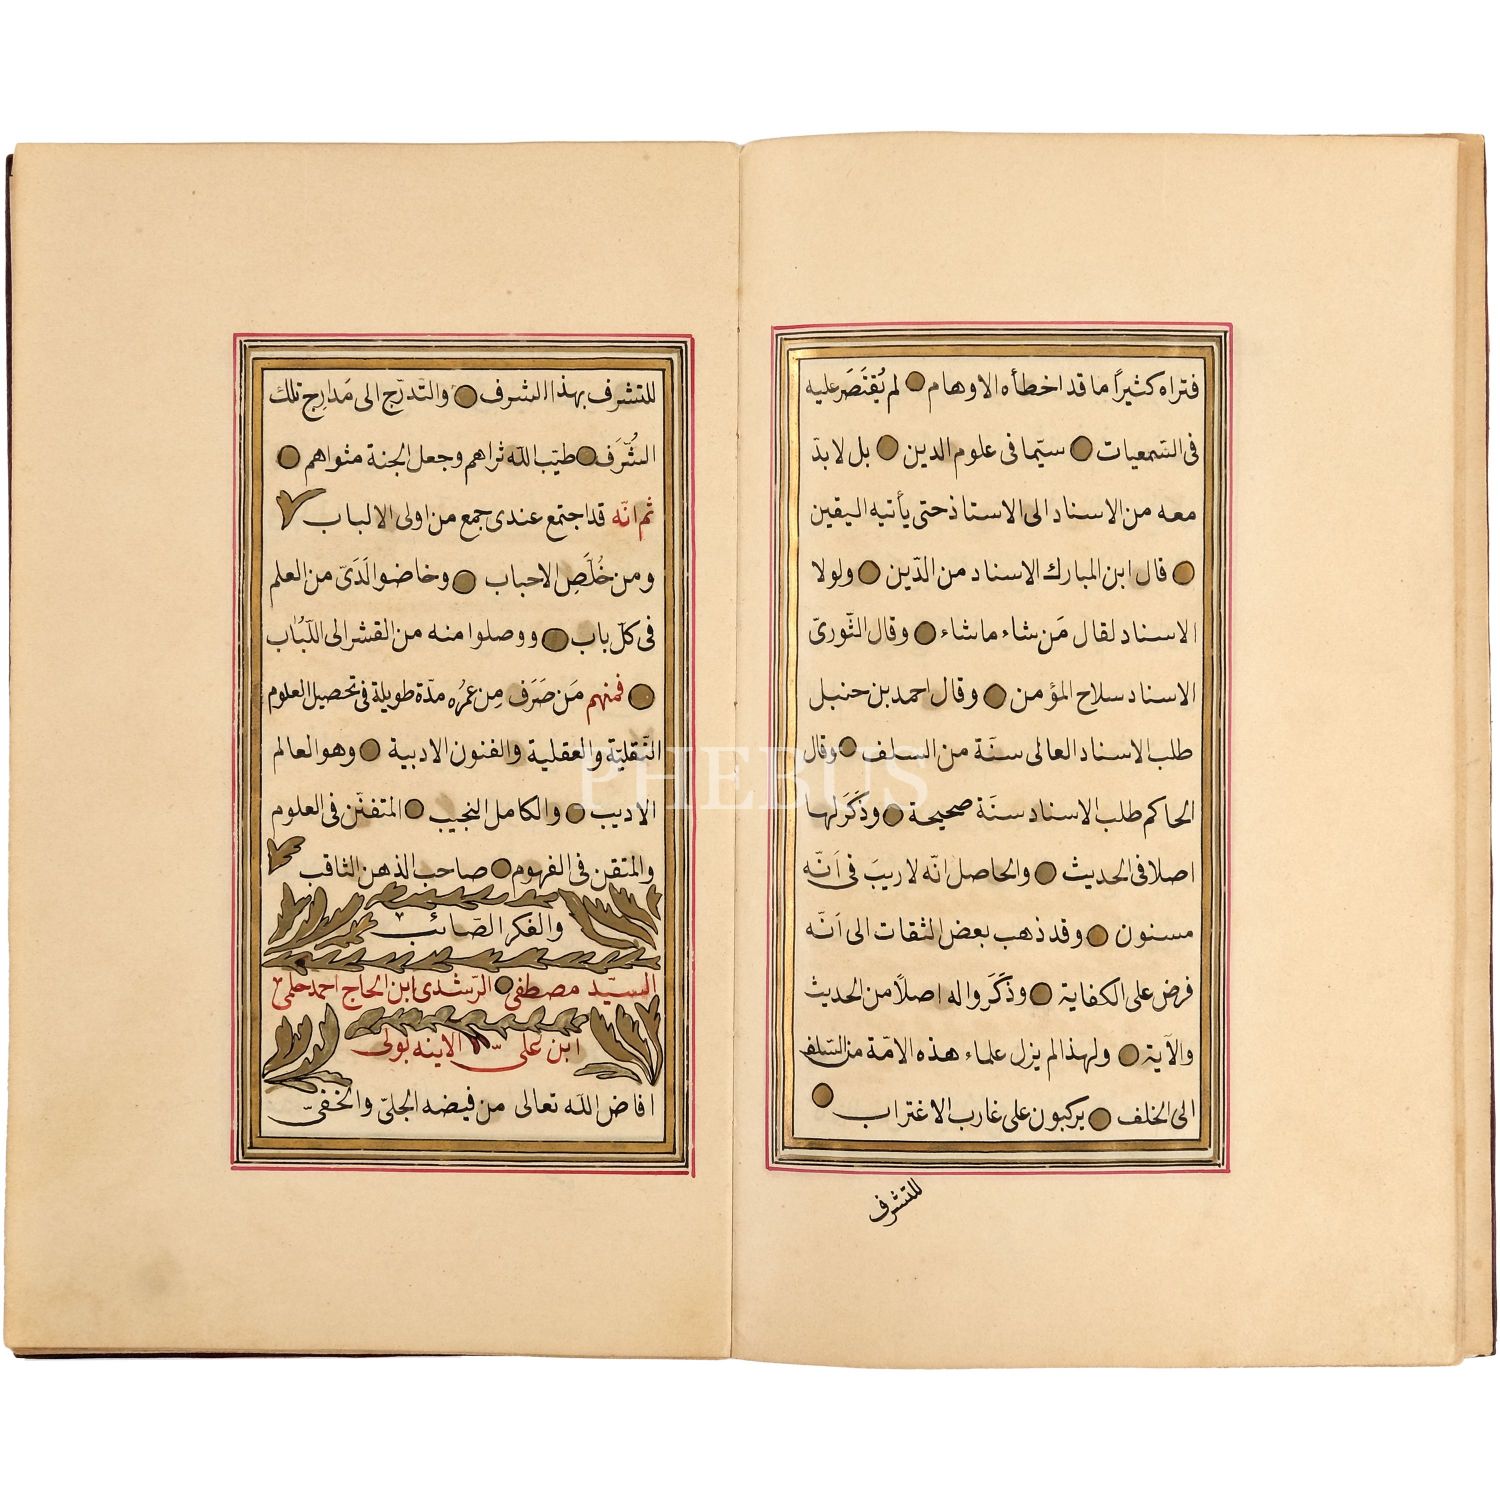 فتراه كثيرًا ما قد اخطأه الاوهام لم يُقتَصَر عليه
فى السّمعيات سيّما فى علوم الدين بل لا بدّ
معه من الاسناد الى الاستاذ حتى يأتيه اليقين
قال ابن المبارك الاسناد من الدّين ولولا
الاسناد لقال مَن شاء ما شاء وقال الثّورىّ
الاسناد سلاح المؤمن وقال احمد بن حنبل
طلب الاسناد العالى سنّة من السلف وقال
الحاكم طلب الاسناد سنّة صحيحة وذَكَرَ لها
اصلا فى الحديث والحاصل انّه لا ريبَ فى اَنّه
مسنون وقد ذهب بعض الثقات الى اَنّه
فرض على الكفاية وذَكَروا له اصلًا من الحديث
والآية ولهذا لم يزل علماء هذه الامّة من السّلف
الى الخلف يركبون على غارب الاغتراب
للتشرف
للتشرف بهذا الشرف والتّدرّج الى مَدارِج تلك
الشُّرَف طيّب اللّه ثراهم وجعل الجنة مثواهم
ثم انّه قد اجتمع عندى جمع من اولى الالباب
ومن خُلَّصِ الاحباب وخاضوا لَدَىّ من العلم
فى كلّ باب ووصلوا منه من القشر الى اللّبُاب
فمنهم مَن صَرَف مِن عمرُه مدّة طويلة فى تحصيل العلوم
النّقليّة والعقلية والفنون الادبية وهو العالم
الاديب والكامل النجيب المتفنّن فى العلوم
والمتقن فى الفهوم صاحب الذهن الثاقب
والفكر الصّائب
السيّد مصطفى الرّشدى ابن الحاج احمد حلمى
ابن على الاينه بولى
افاض اللّه تعالى من فيضه الجلىّ والخفىّ
PHEBUS